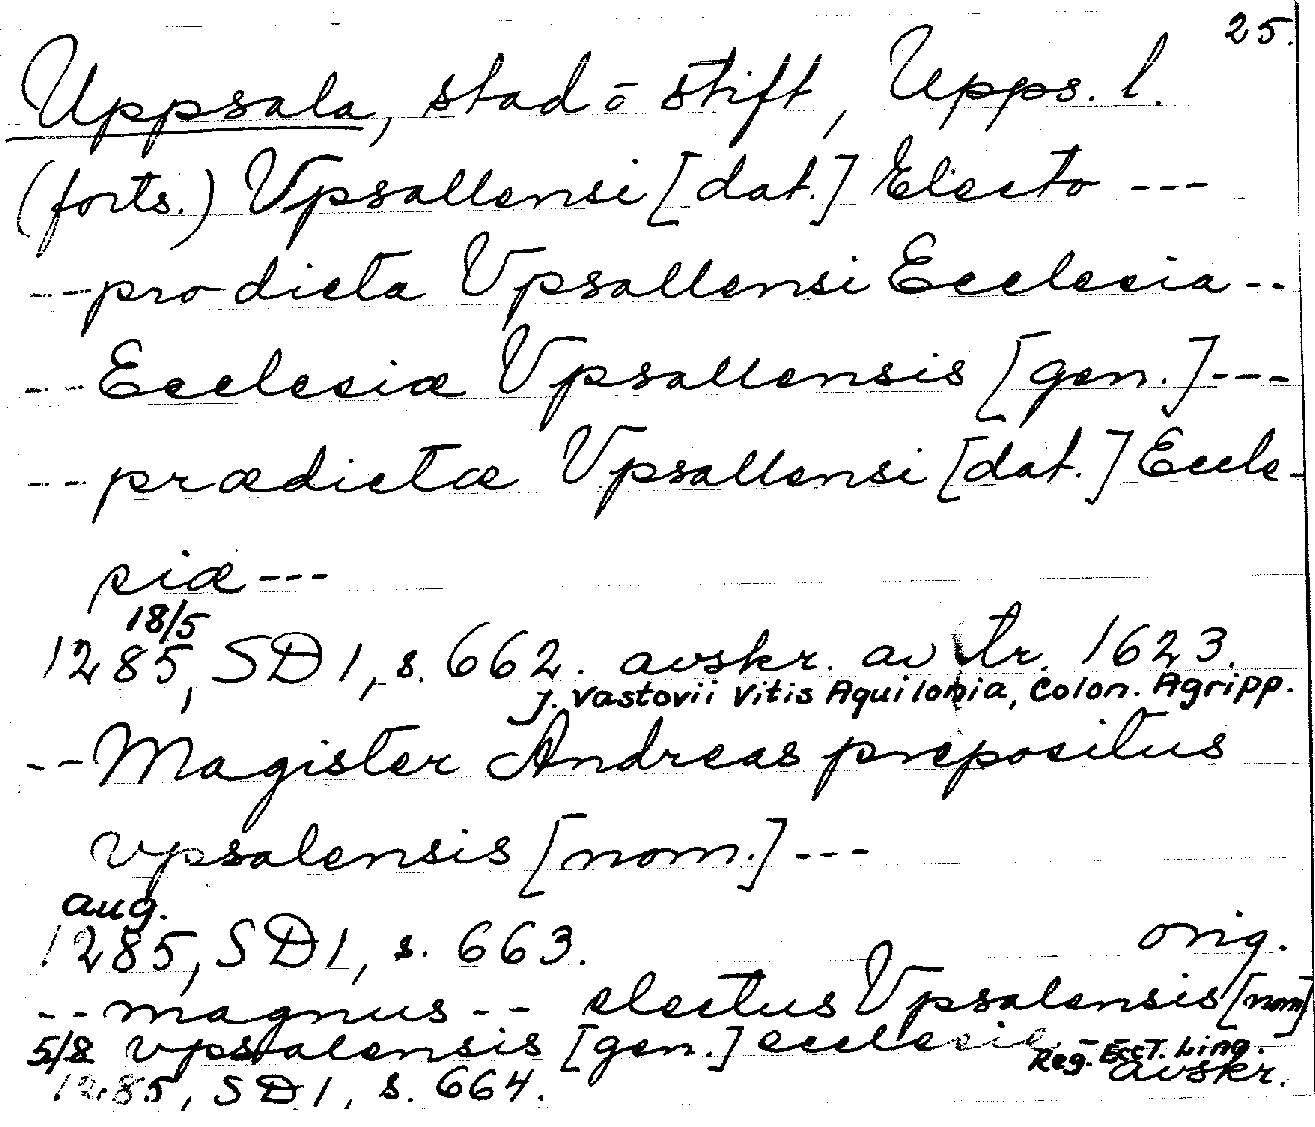 25.
Uppsala, stad o stift, Upps. l.
(forts.) Vpsallensi [dat.] Electo ---
--pro dicta Vpsallensi Ecclesia--
--Ecclesiæ Vpsallensis [gen.]---
--prædictæ Vpsallensi [dat.] Eccle-
siæ---
18/5
1285, SD 1, s. 662. avskr. av tr. 1623.
J. Vastovii Vitis Aquilonia, Colon. Agripp.
--Magister Andreas prepositus
vpsalensis [nom.]---
aug.
1285, SD 1, s. 663. orig.
--magnus-- electus Vpsalensis [nom]
5/8 vpsalensis [gen.] ecclesie--
Reg. Eccl. Ling.
1285, SD 1, s. 664. avskr.